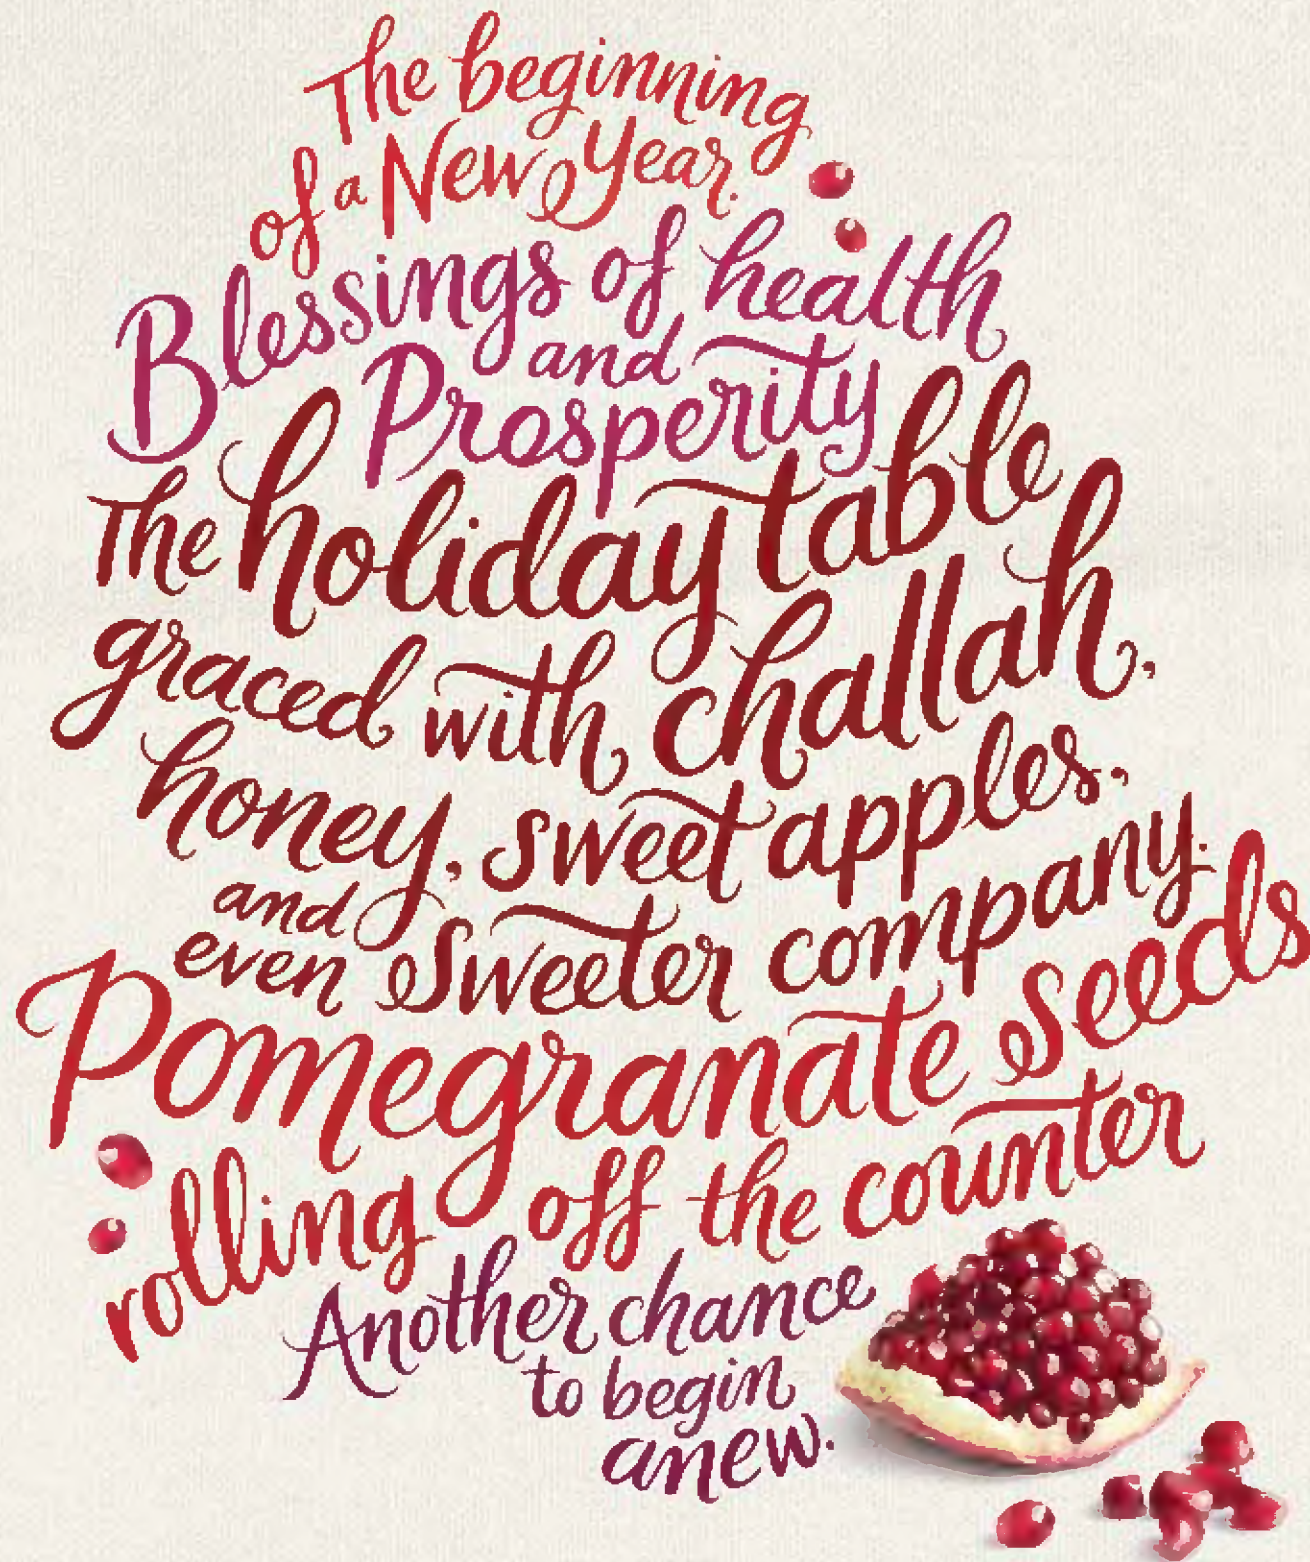 The beginning
of a New Year.
Blessings of health
and
Prosperity
The holiday table
graced with challah,
honey, sweet apples,
and
even sweeter company.
Pomegranate seeds
rolling off the counter
Another chance
to begin
anew.